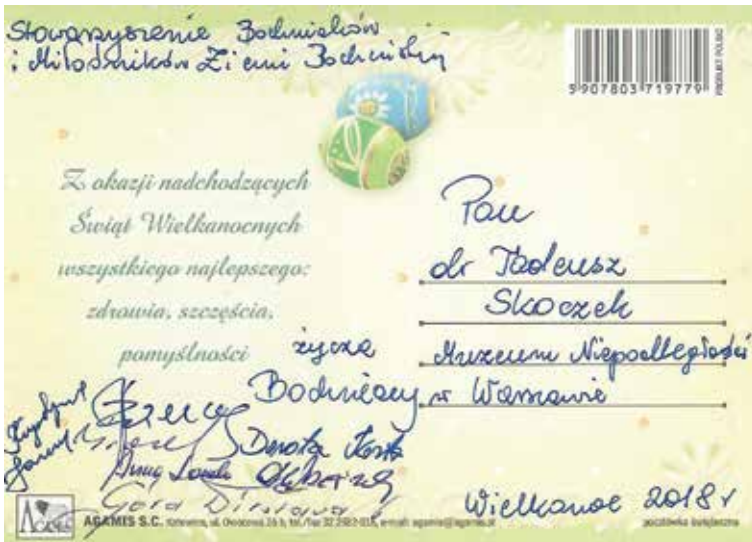 Stowarzyszenie Bochniaków
i Miłośników Ziemi Bocheńskiej
PRODUKT POLSKI
5907803719779
Z okazji nadchodzących
Świąt Wielkanocnych
wszystkiego najlepszego:
zdrowia, szczęścia,
pomyślności życzą
Bochniacy
Pan
dr Tadeusz
Skoczek
Muzeum Niepodległości
w Warszawie
Krystyna
Dorota
Anna
Góra
Wielkanoc 2018 r
AGAMIS S.C. Katowice, ul. Owocowa e-mail: agamis@agamis.pl
pocztówka świąteczna